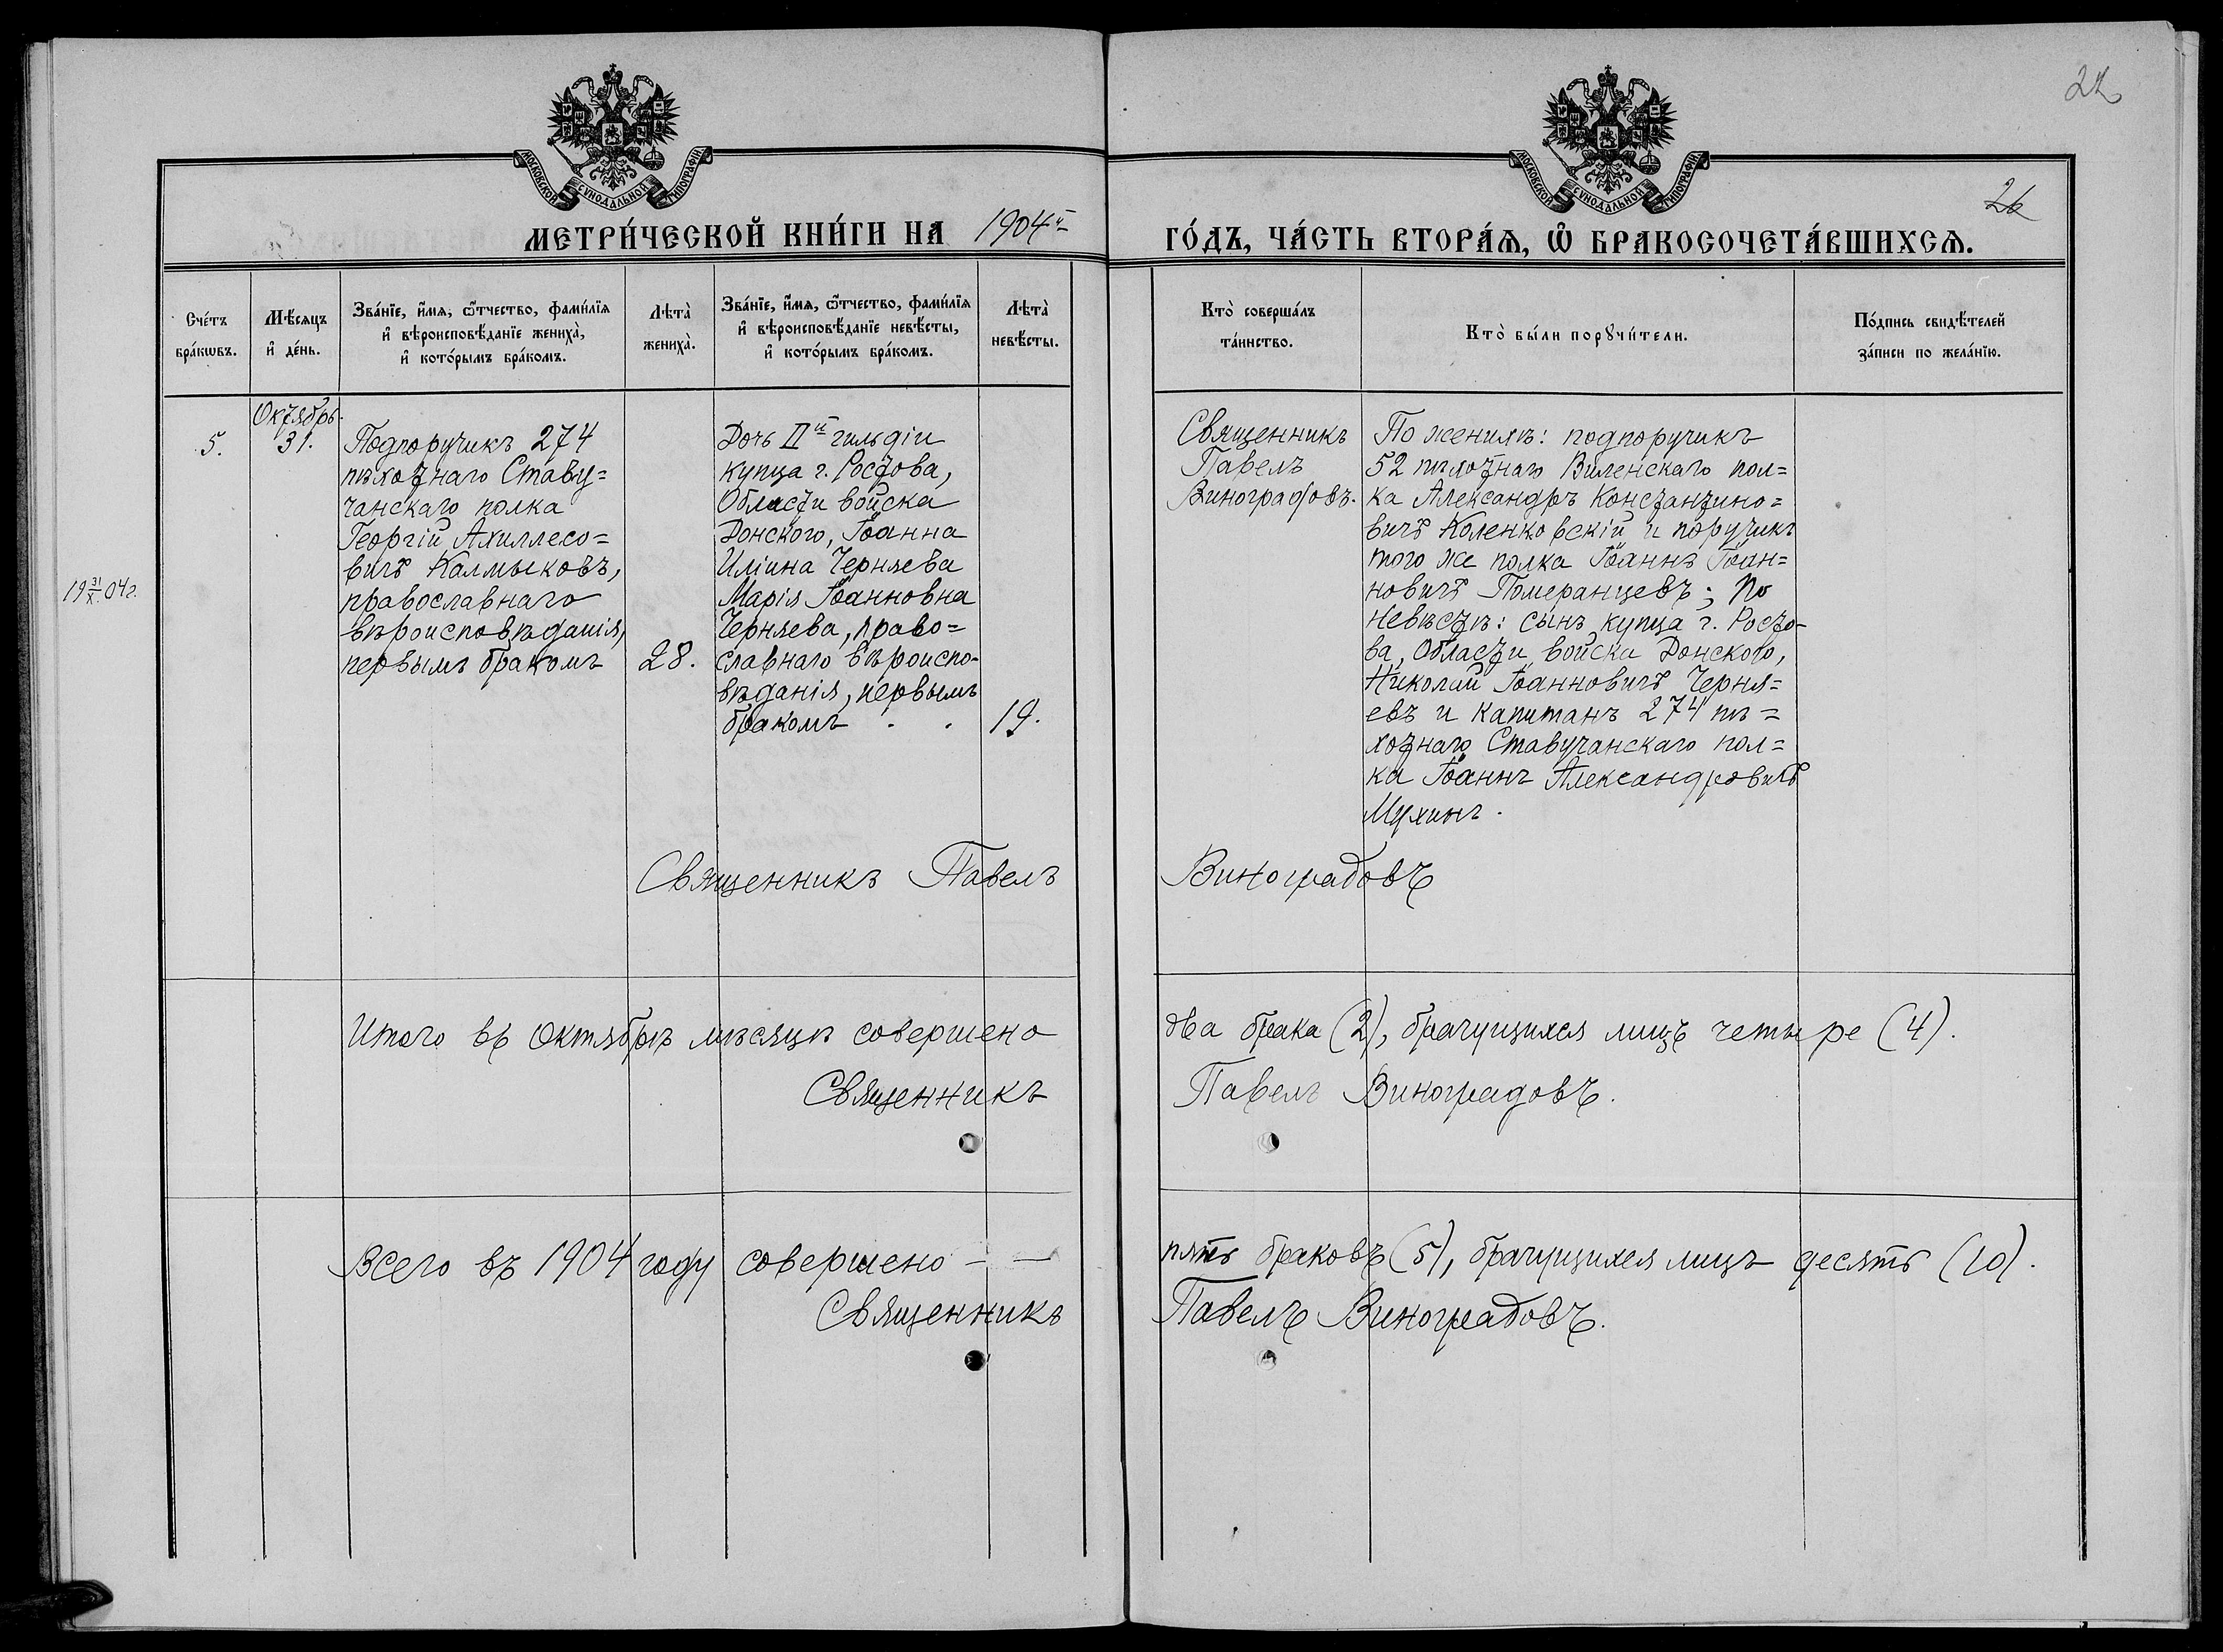 22
26
МОСКОВСКОЙ СУНОДАЛЬНОЙ ТИПОГРАФІИ.
МОСКОВСКОЙ СУНОДАЛЬНОЙ ТИПОГРАФІИ.
МЕТРИ́ЧЕСКОЙ КНИ́ГИ НА 1904й
ГО́ДЪ, ЧА́СТЬ ВТОРА́Ѧ, Ѽ БРАКОСОЧЕТА́ВШИХСѦ.
Сче́тъ
бра́кѡвъ.
Мѣ́сѧцъ
и҆ де́нь.
Зва́нїе, и҆́мѧ, ѻ҆́тчество, фами́лїѧ
и҆ вѣроисповѣ́данїе жениха̀,
и҆ кото́рымъ бра́комъ.
Лѣта̀
жениха̀.
Зва́нїе, и҆́мѧ, ѻ҆́тчество, фами́лїѧ
и҆ вѣроисповѣ́данїе невѣ́сты,
и҆ кото́рымъ бра́комъ.
Лѣта̀
невѣ́сты.
Кто̀ соверша́лъ
та́инство.
Кто̀ бы́ли порꙋчи́тели.
По́дпись свидѣ́телей
за́писи по жела́нїю.
19 31/X 04 г.
5.
Октябрь.
31.
Подпоручикъ 274
пѣхотнаго Ставу=
чанскаго полка
Георгій Ахиллесо=
вичъ Калмыковъ,
православнаго
вѣроисповѣданія,
первымъ бракомъ
28.
Дочь IIй гильдіи
купца г. Ростова,
Области войска
Донского, Іоанна
Иліина Черняева
Марія Іоанновна
Черняева, право=
славнаго вѣроиспо-
вѣданія, первымъ
бракомъ . .
19.
Священникъ
Павелъ
Виноградовъ.
По женихѣ: подпоручикъ
52 пѣхотнаго Виленскаго пол=
ка Александръ Константино=
вичъ Коленковскій и поручикъ
того же полка Іоаннъ Іоан=
новичъ Померанцевъ; по
невѣстѣ: сынъ купца г. Росто-
ва, Области войска Донского,
Николай Іоанновичъ Черня=
евъ и капитанъ 274 пѣ=
хотнаго Ставучанскаго пол=
ка Іоаннъ Александровичъ
Мухинъ.
Священникъ Павелъ Виноградовъ
Итого въ Октябрѣ мѣсяцѣ совершено два брака (2), брачущихся лицъ четыре (4).
Священникъ Павелъ Виноградовъ.
Всего въ 1904 году совершено - — пять браковъ (5), брачущихся лицъ десять (10).
Священникъ Павелъ Виноградовъ.